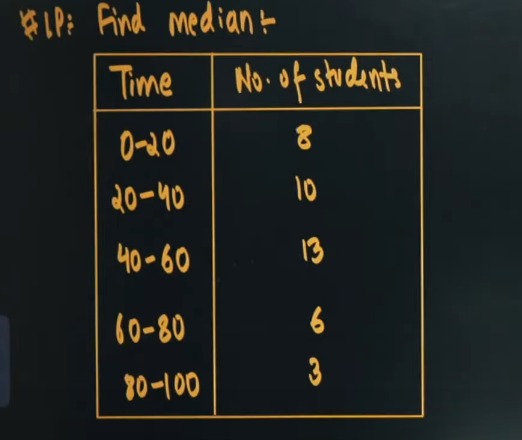 #LP: Find median:-
Time No. of students
0-20 8
20-40 10
40-60 13
60-80 6
80-100 3